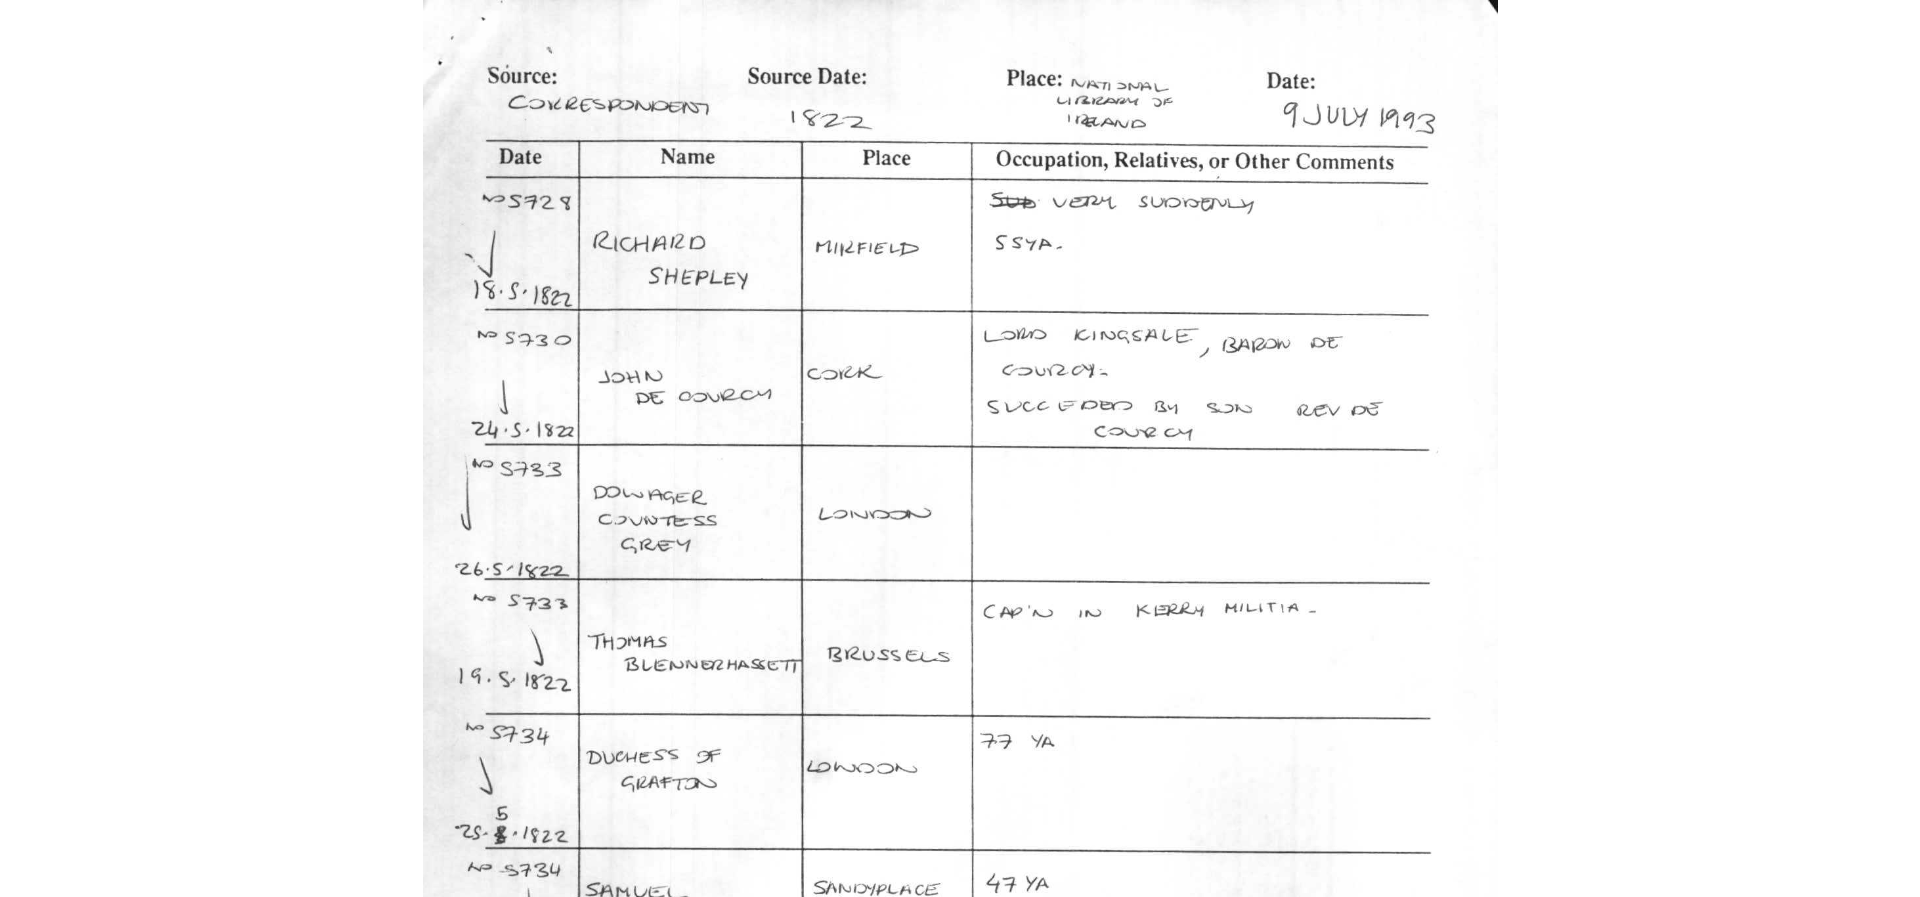 Source: Source Date: Place: NATIONAL Date:
CORRESPONDENT 1822 LIBRARY OF 9 JULY 1993
IRELAND
Date Name Place Occupation, Relatives, or Other Comments
No 5728 SUD VERY SUDDENLY
RICHARD MIRFIELD 55YA.
SHEPLEY
18.5.1822
No 5730 LORD KINGSALE, BARON DE
JOHN CORK COURCY.
DE COURCY SUCCEDED BY SON REV DE
24.5.1822 COURCY
No 5733
DOWAGER
COUNTESS LONDON
GREY
26.5.1822
No 5733 CAP'N IN KERRY MILITIA.
THOMAS
BLENNERHASSETT BRUSSELS
19.5.1822
No 5734 77 YA
DUCHESS OF
GRAFTON LONDON
5
25.8.1822
No 5734
SAMUEL SANDYPLACE 47 YA